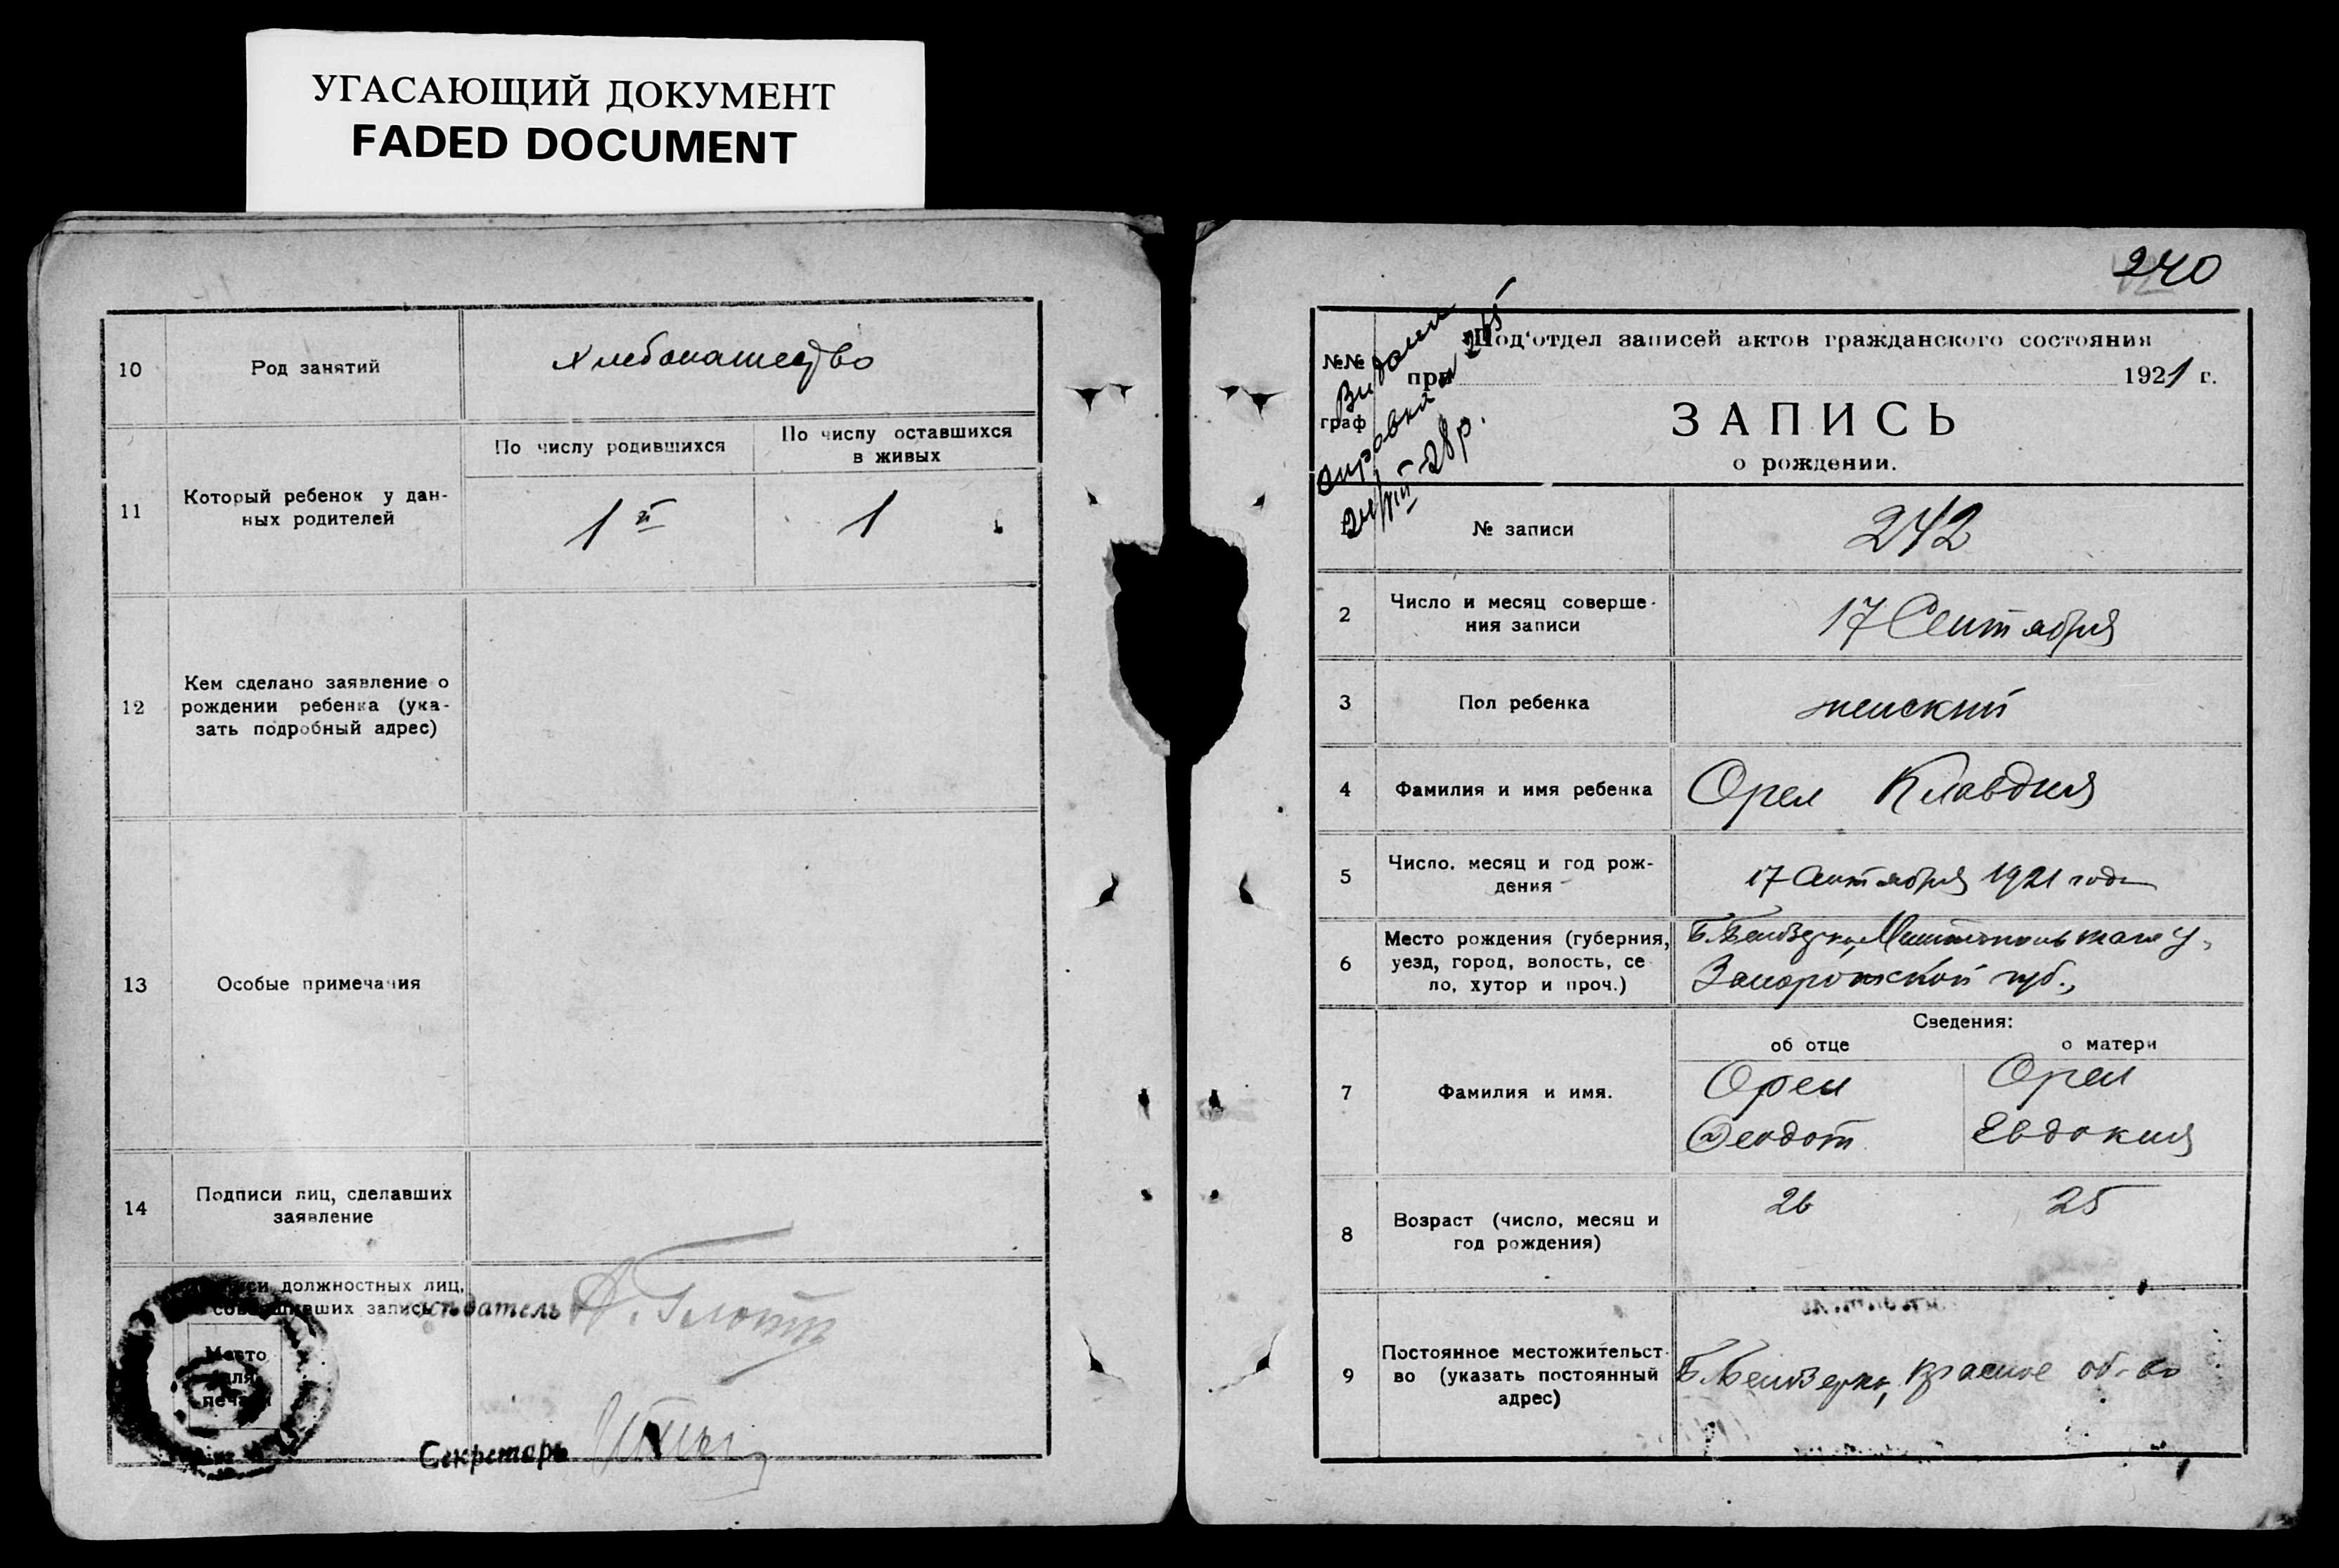 УГАСАЮЩИЙ ДОКУМЕНТ
FADED DOCUMENT
10
Род занятий
Хлебопашество
11
Который ребенок у дан-
ных родителей
По числу родившихся
По числу оставшихся
в живых
1й
1
12
Кем сделано заявление о
рождении ребенка (ука-
зать подробный адрес)
13
Особые примечания
14
Подписи лиц, сделавших
заявление
должностных лиц,
совершивших запись
Место
для
печати
датель
Секретарь
240
№№
граф
Видали
справка
28 р.
Под'отдел записей актов гражданского состояния
при 1921 г.
ЗАПИСЬ
о рождении.
1
№ записи
242
2
Число и месяц соверше-
ния записи
17 Сентября
3
Пол ребенка
женский
4
Фамилия и имя ребенка
Орел Клавдия
5
Число, месяц и год рож-
дения
17 Сентября 1921 года
6
Место рождения (губерния,
уезд, город, волость, се
ло, хутор и проч.)
Б. Белозерка, у.
Запорожской губ.,
Сведения:
об отце
о матери
7
Фамилия и имя.
Орел
Феодот
Орел
Евдокия
8
Возраст (число, месяц и
год рождения)
26
25
9
Постоянное местожительст-
во (указать постоянный
адрес)
Б. Белозерка, красное об-во